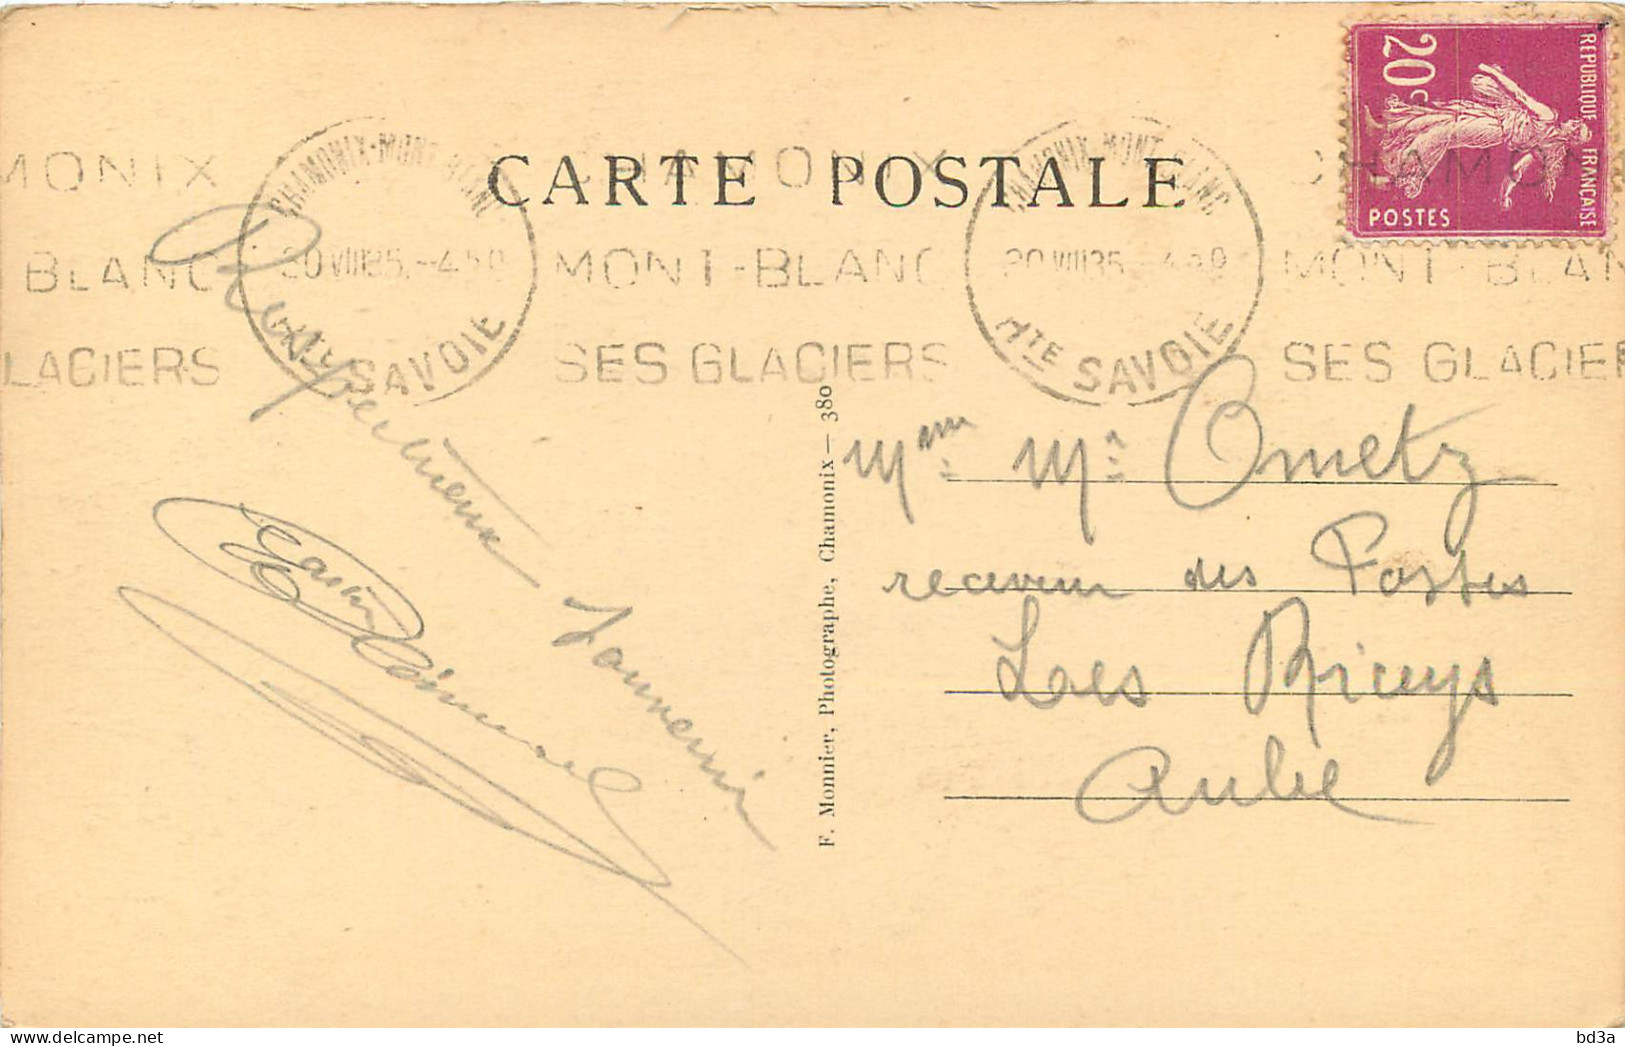 CARTE POSTALE
REPUBLIQUE FRANÇAISE
20c
POSTES
MONIX
BLANC
LACIERS
CHAMONIX-MONT-BLANC
20 VIII 35 -4 50
SAVOIE
CHAMONIX
MONT-BLANC
SES GLACIERS
CHAMONIX-MONT-BLANC
20 VIII 35
HTE SAVOIE
CHAMON
MONT-BLAN
SES GLACIER
Respectueux
Souvenir
F. Monnier, Photographe, Chamonix — 380
Mme Mr Ometz
receveur des Postes
Les Riceys
Aube
bd3a